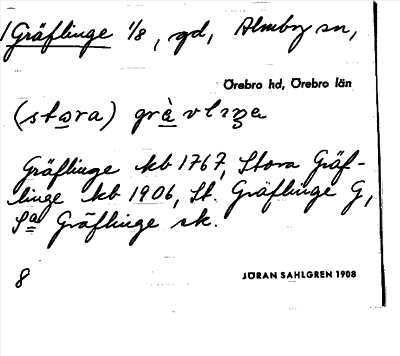 Gräflinge 1/8, gd, Almby sn,
Örebro hd, Örebro län
(stora) gràvlinge
Gräflinge kb 1767, Stora Gräf-
linge kb 1906, St. Gräflinge G,
Sa Gräflinge sk.
8
JÖRAN SAHLGREN 1908